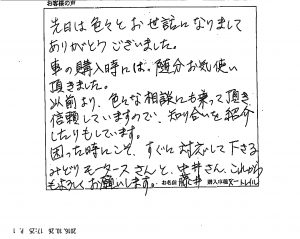 お客様の声
先日は色々とお世話になりまして
ありがとうございました。
車の購入時には。随分お気使い
頂きました。
以前より、色々な相談にも乗って頂き
信頼していますので、知り合いを紹介
したりもしています。
困った時にこそ、すぐに対応して下さる
みどりモータースさんと、中井さん。これからも
よろしくお願いします。
お名前 藤井 購入車種 エクストレイル
2010.10.26 17:25 P. 1